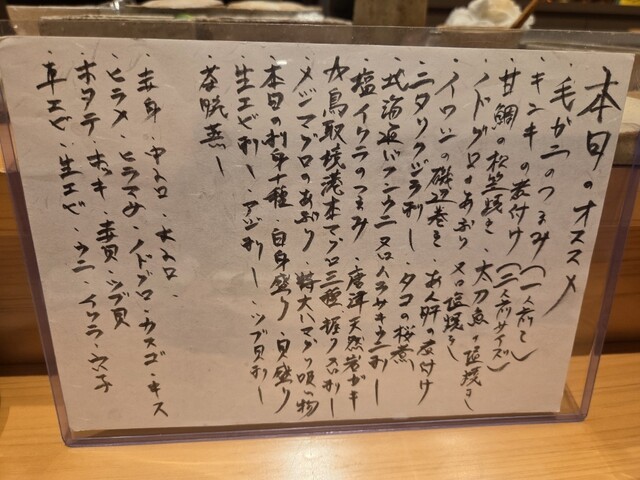 本日のオススメ
・毛ガニのつまみ(一人前も)
・キンキの煮付け(二人前サイズ)
・甘鯛の松笠焼き・太刀魚の塩焼き
・ノドグロのあぶり又は塩焼き
・イワシの磯辺巻き・あん肝の煮付け
・ニタリクジラ刺し・タコの桜煮
・北海道バフンウニ又はムラサキウニ刺し
・塩イクラのつまみ・唐津天然岩ガキ
・鳥取境港本マグロ三種・握り又は刺し
・メジマグロのあぶり・特大ハマグリ
・本日の刺身十種・白身盛り・貝盛り
・生エビ刺し・アジ刺し・ツブ貝刺し
・茶碗蒸し
・赤身・中トロ・大トロ・
・ヒラメ・ヒラマサ・ノドグロ・カスゴ・キス
・ホタテ・ホッキ・赤貝・ツブ貝
・車エビ・生エビ・ウニ・イクラ・穴子